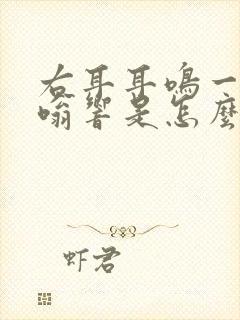 右耳耳鳴一
嗡響是怎麼
虾君